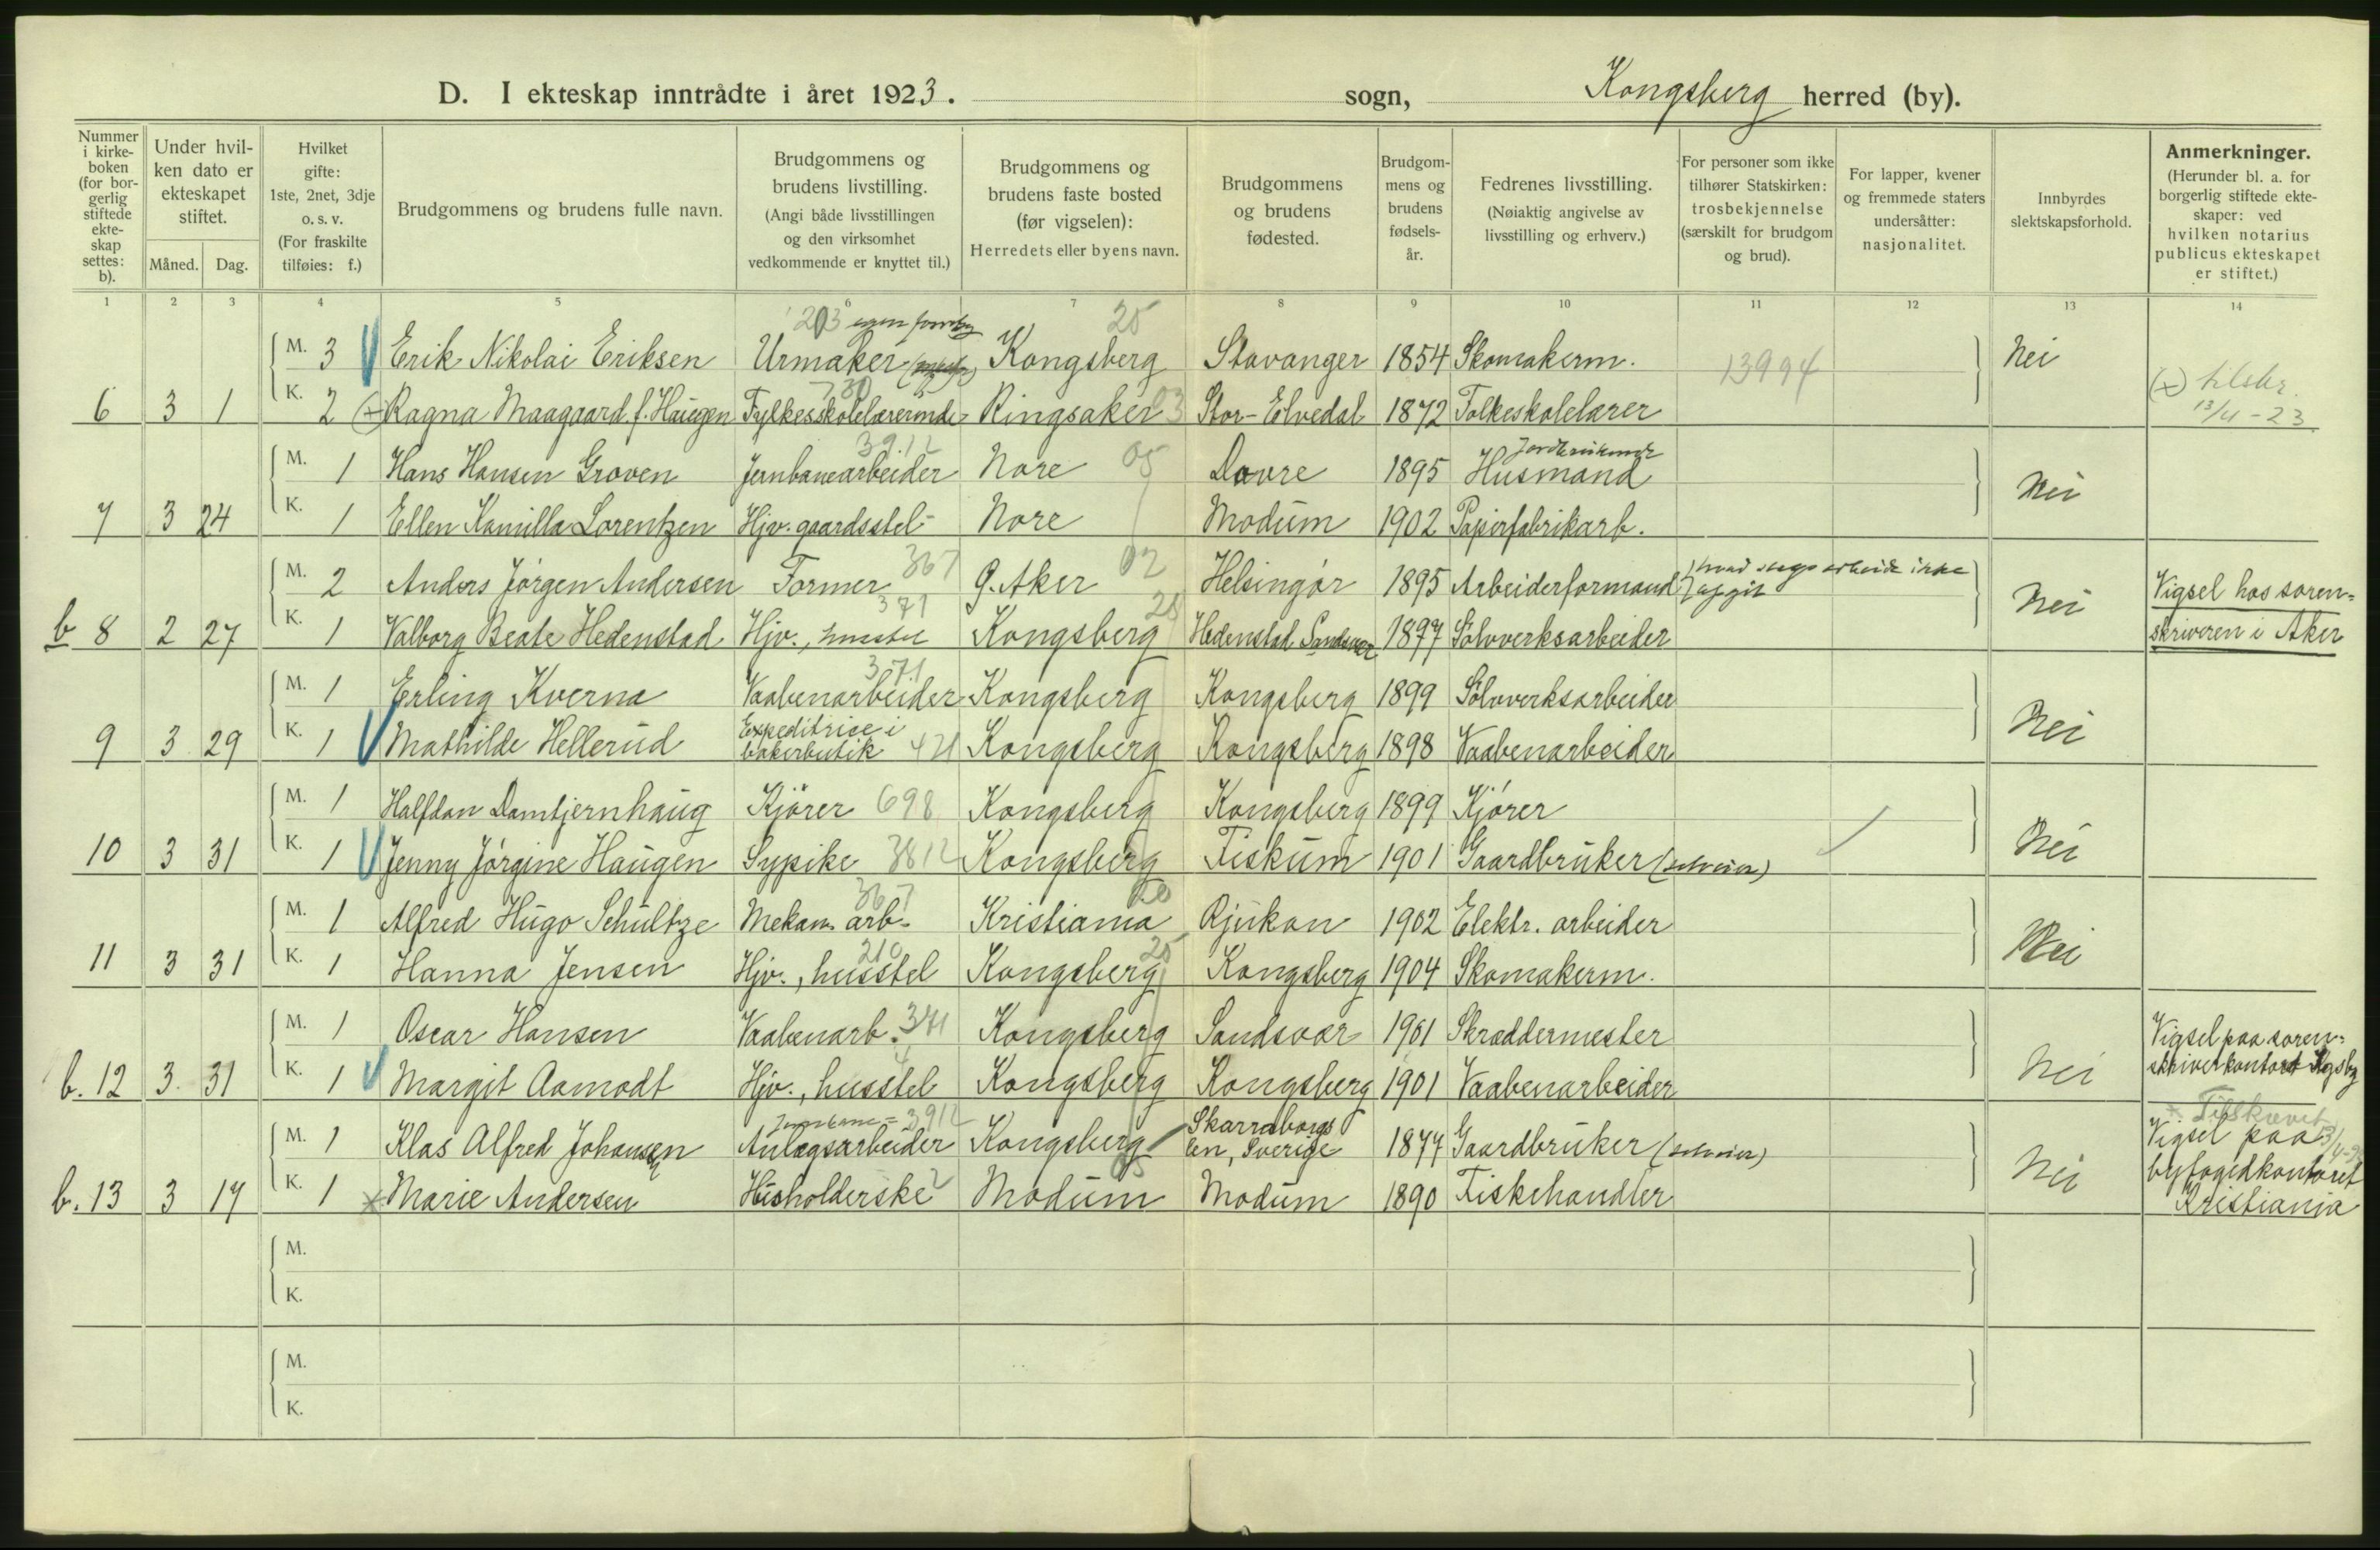 D. I ekteskap inntrådte i året 1923. sogn, Kongsberg herred (by).
Nummer i kirke- boken (for bor- gerlig stiftede ekte- skap settes: b).
Under hvil- ken dato er ekteskapet stiftet.
Måned. Dag.
Hvilket gifte: 1ste, 2net, 3dje o. s. v. (For fraskilte tilføies: f.)
Brudgommens og brudens fulle navn.
Brudgommens og brudens livstilling. (Angi både livsstillingen og den virksomhet vedkommende er knyttet til.)
Brudgommens og brudens faste bosted (før vigselen): Herredets eller byens navn.
Brudgommens og brudens fødested.
Brudgom- mens og brudens fødsels- år.
Fedrenes livsstilling. (Nøiaktig angivelse av livsstilling og erhverv.)
For personer som ikke tilhører Statskirken: trosbekjennelse (særskilt for brudgom og brud).
For lapper, kvener og fremmede staters undersåtter: nasjonalitet.
Innbyrdes slektskapsforhold.
Anmerkninger. (Herunder bl. a. for borgerlig stiftede ekte- skaper: ved hvilken notarius publicus ekteskapet er stiftet.)
1 2 3 4 5 6 7 8 9 10 11 12 13 14
203 25
M. 3 Erik Nikolai Eriksen Urmaker Kongsberg Stavanger 1854 Skomakerm. 13994 Nei
730
6 3 1 K. 2 (x) Ragna Maagaard f. Haugen Fylkesskolelærerinde Ringsaker 03 Stor-Elvedal 1872 Folkeskolelærer (x) tilskr. 13/4-23
3912 Jordbrukende
M. 1 Hans Hansen Groven Jernbanearbeider Nore 05 Dovre 1895 Husmand Nei
7 3 24 K. 1 Ellen Kamilla Lorentzen Hjv. gaardsstel Nore Modum 1902 Papirfabrikarb.
M. 2 Anders Jørgen Andersen Former 367 Ø. Aker 02 Helsingør 1895 Arbeiderformand hvad slags arbeide ikke opgit Nei Vigsel hos soren-
371 25
b 8 2 27 K. 1 Valborg Beate Hedenstad Hjv., husstel Kongsberg Hedenstad Sandsvær 1897 Sølvverksarbeider skriveren i Aker
371
M. 1 Erling Kverna Vaabenarbeider Kongsberg Kongsberg 1899 Sølvverksarbeider Nei
9 3 29 K. 1 Mathilde Hellerud Expeditrice i bakerbutik 421 Kongsberg Kongsberg 1898 Vaabenarbeider
M. 1 Halfdan Damtjernhaug Kjører 698 Kongsberg Kongsberg 1899 Kjører Nei
10 3 31 K. 1 Jenny Jørgine Haugen Sypike 3812 Kongsberg Fiskum 1901 Gaardbruker (selveier)
367 20
M. 1 Alfred Hugo Schultze Mekan. arb. Kristiania Rjukan 1902 Elektr. arbeider Nei
210 25
11 3 31 K. 1 Hanna Jensen Hjv., husstel Kongsberg Kongsberg 1904 Skomakerm.
M. 1 Oscar Hansen Vaabenarb. 371 Kongsberg Sandsvær 1901 Skræddermester Nei Vigsel paa soren-
b. 12 3. 31 K. 1 Margit Aamodt Hjv., husstel Kongsberg Kongsberg 1901 Vaabenarbeider skriverkontoret Kgsbg
Jernbane- 3912 x Tilskrevet 13/4-23
M. 1 Klas Alfred Johansen Anlægsarbeider Kongsberg Skaraborgs len, Sverige 1877 Gaardbruker (selveier) Nei Vigsel paa
b. 13 3 17 K. 1 x Marie Andersen Husholderske 2 Modum 05 Modum 1890 Fiskehandler byfogedkontoret Kristiania
M.
K.
M.
K.